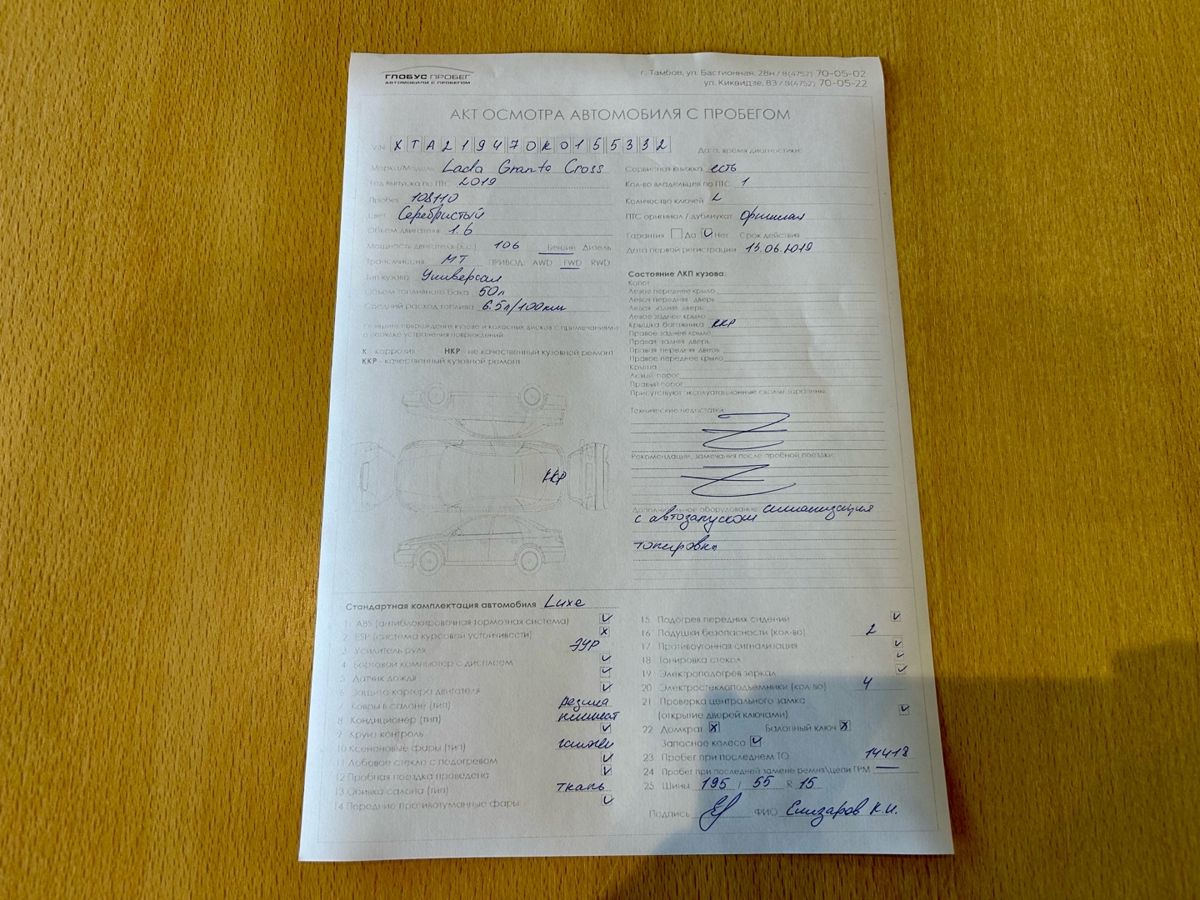 ГЛОБУС ПРОБЕГ
АВТОМОБИЛИ С ПРОБЕГОМ
г. Тамбов, ул. Бастионная, 28н / 8(4752) 70-05-02
ул. Киквидзе, 83 / 8(4752) 70-05-22
АКТ ОСМОТРА АВТОМОБИЛЯ С ПРОБЕГОМ
VIN XTA219470K0155332
Дата, время диагностики
Марка/Модель Lada Granta Cross
Год выпуска по ПТС 2019
Пробег 108110
Цвет Серебристый
Объем двигателя 1.6
Мощность двигателя (л.с.) 106 Бензин Дизель
Трансмиссия МТ ПРИВОД: AWD FWD RWD
Тип кузова Универсал
Объем топливного бака 50л
Средний расход топлива 6.5л/100км
Сервисная книжка есть
Кол-во владельцев по ПТС 1
Количество ключей 2
ПТС оригинал / дубликат Оригинал
Гарантия Да Нет Срок действия
Дата первой регистрации 15.06.2019
К - коррозия НКР - не качественный кузовной ремонт
ККР - качественный кузовной ремонт
ККР
Состояние ЛКП кузова:
Капот
Левое переднее крыло
Левая передняя дверь
Левая задняя дверь
Левое заднее крыло
Крышка багажника ККР
Правое заднее крыло
Правая задняя дверь
Правая передняя дверь
Правое переднее крыло
Крыша
Левый порог
Правый порог
Присутствуют эксплуатационные сколы, царапины
Технические недостатки:
Рекомендации, замечания после пробной поездки:
Дополнительное оборудование сигнализация
с автозапуском
тонировка
Стандартная комплектация автомобиля Luxe
1 ABS (антиблокировочная тормозная система)
2 ESP (система курсовой устойчивости)
3 Усилитель руля ЭУР
4 Бортовой компьютер с дисплеем
5 Датчик дождя
6 Защита картера двигателя
7 Ковры в салоне (тип) резина
8 Кондиционер (тип) климат
9 Круиз контроль
10 Ксеноновые фары (тип)
11 Лобовое стекло с подогревом
12 Пробная поездка проведена
13 Обивка салона (тип) ткань
14 Передние противотуманные фары
15 Подогрев передних сидений
16 Подушки безопасности (кол-во) 2
17 Противоугонная сигнализация
18 Тонировка стекол
19 Электроподогрев зеркал
20 Электростеклоподъемники (кол-во) 4
21 Проверка центрального замка
(открытие дверей ключами)
22 Домкрат Балонный ключ
Запасное колесо
23 Пробег при последнем ТО
24 Пробег при последней замене ремня\цепи ГРМ
25 Шины 195 / 55 R 15
Подпись ФИО Елизаров К.И.